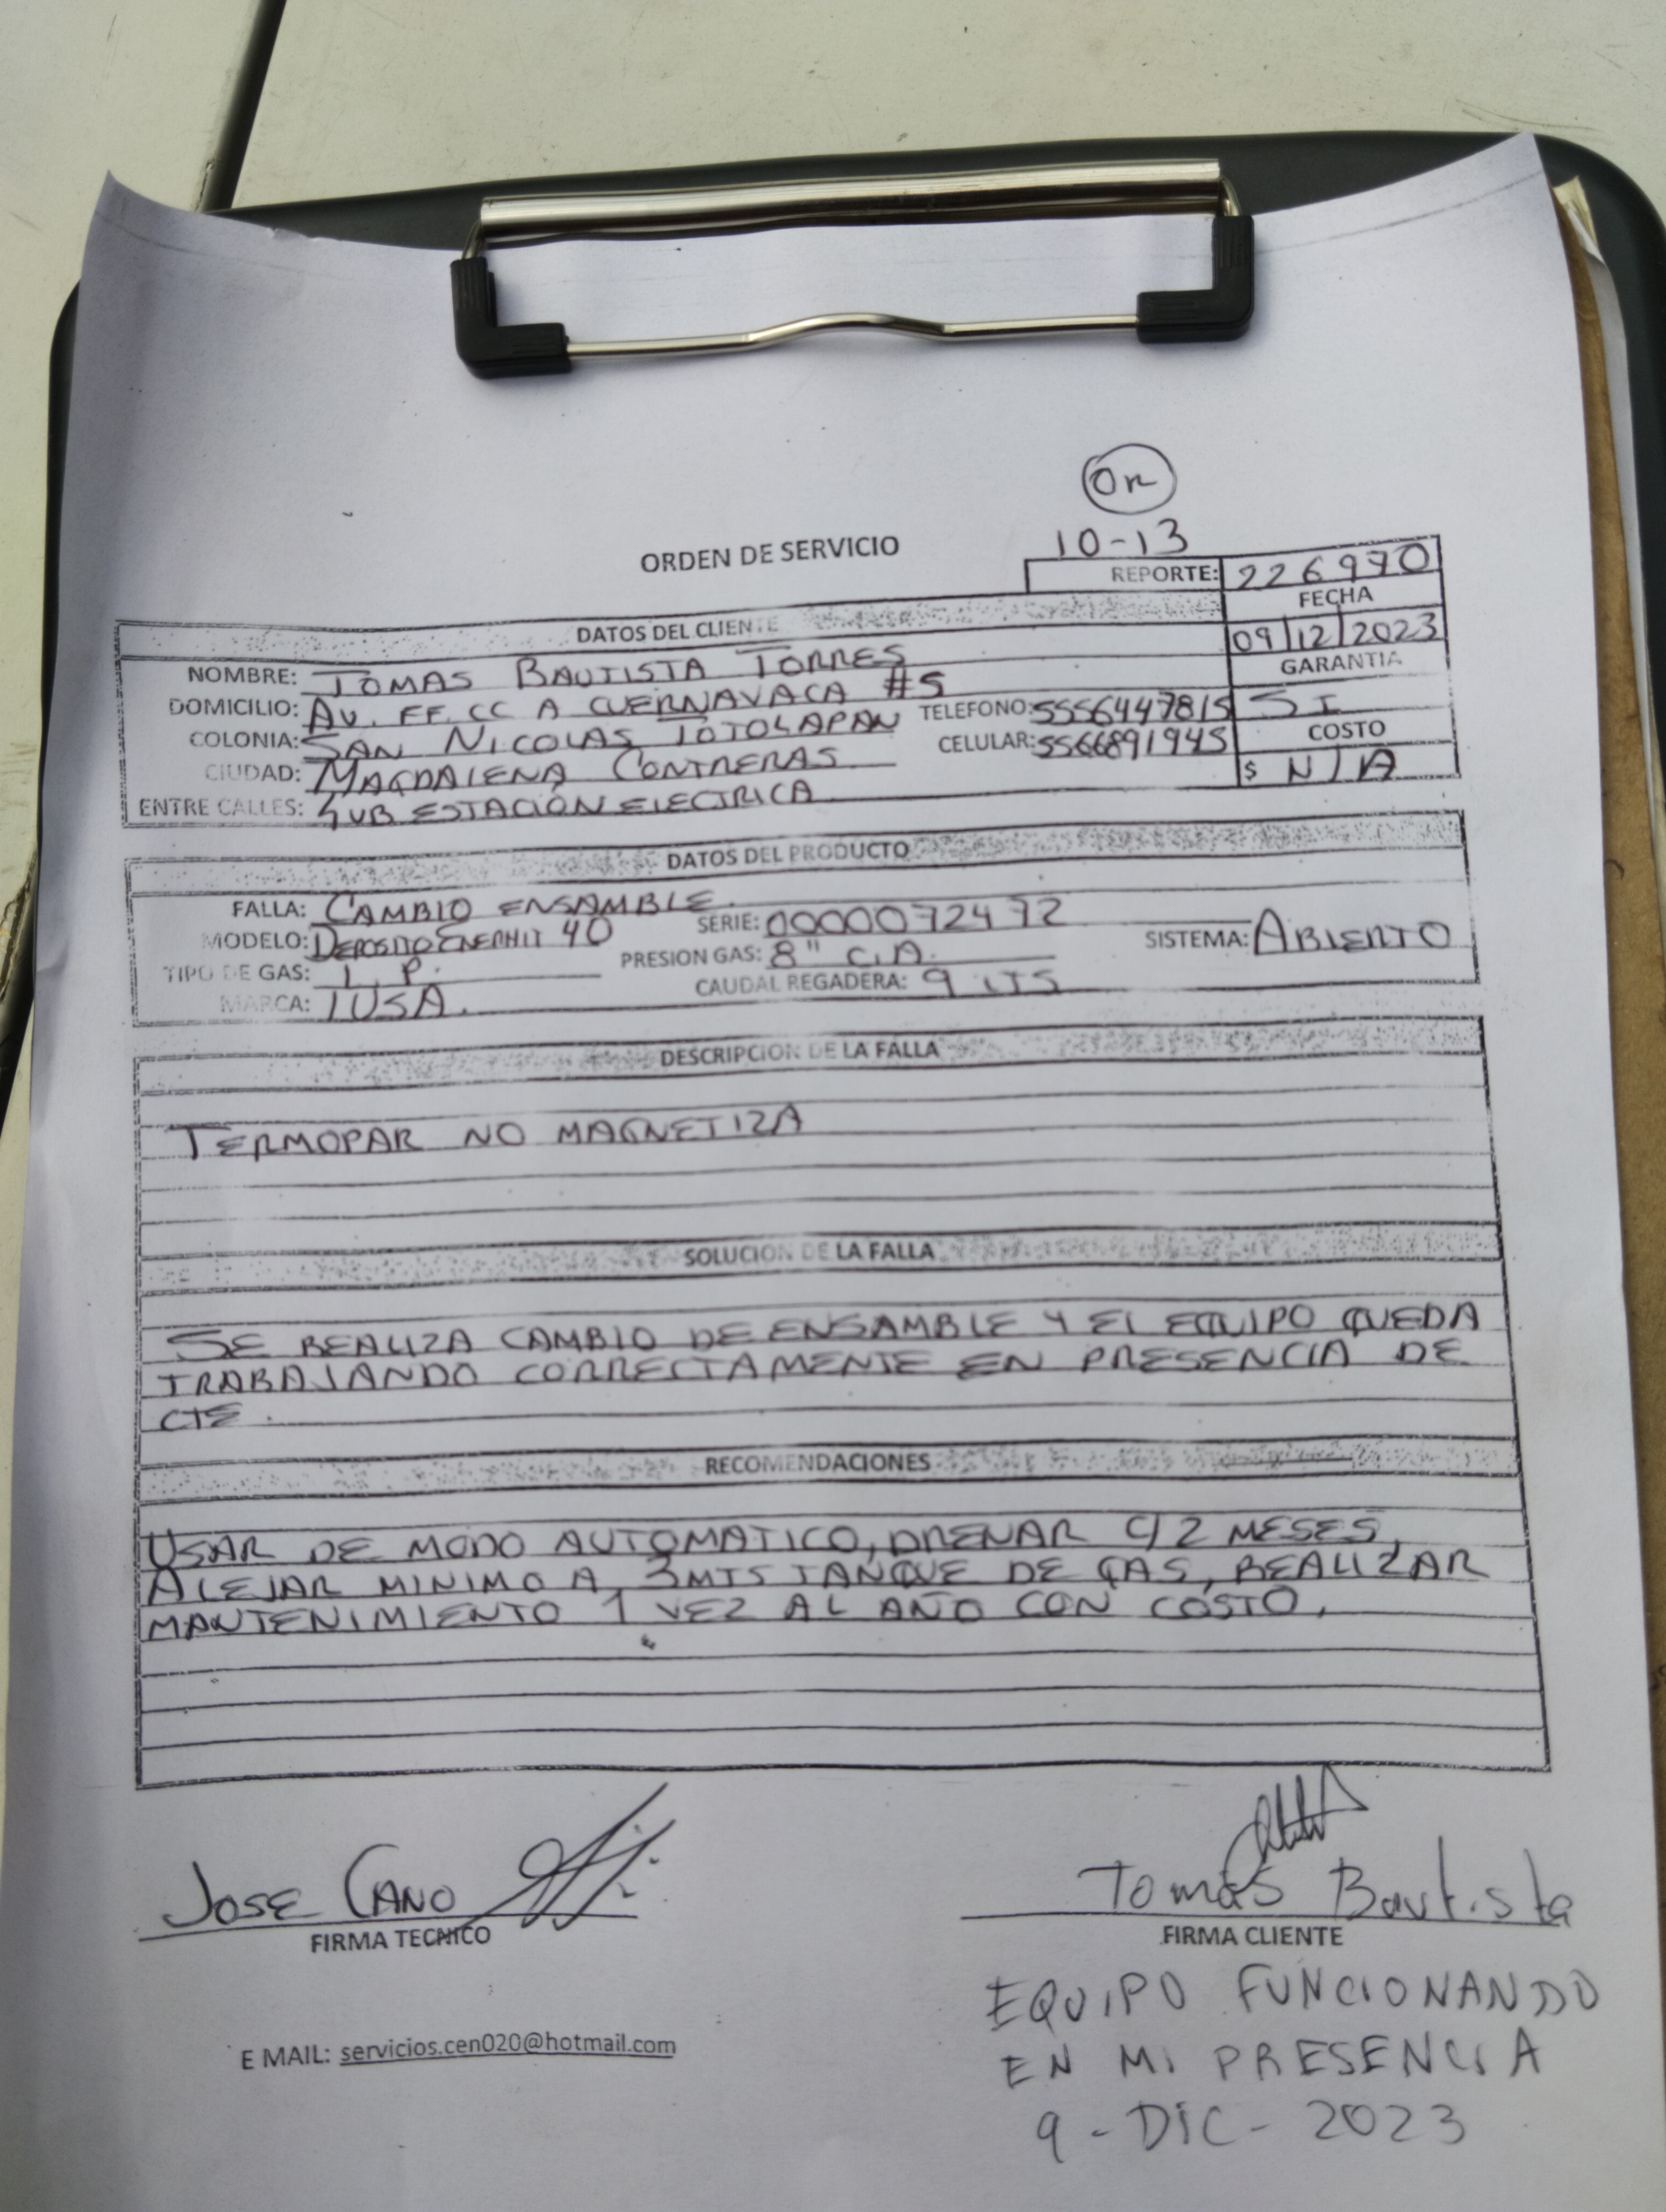 On
10-13
ORDEN DE SERVICIO
REPORTE: 226970
DATOS DEL CLIENTE
FECHA
09/12/2023
NOMBRE: TOMAS BAUTISTA TORRES
GARANTIA
SI
DOMICILIO: AV. FF.CC A CUERNAVACA #5
TELEFONO: 5556447815
COLONIA: SAN NICOLAS TOTOLAPAN
CELULAR: 5566891945
COSTO
$ N/A
CIUDAD: MAGDALENA CONTRERAS
ENTRE CALLES: SUB ESTACIÓN ELECTRICA
DATOS DEL PRODUCTO
FALLA: CAMBIO ENSAMBLE.
MODELO: DEPOSITO 40
SERIE: 0000072472
SISTEMA: ABIERTO
TIPO DE GAS: L.P.
PRESION GAS: 8" C.A.
MARCA: IUSA.
CAUDAL REGADERA: 9 LTS
DESCRIPCION DE LA FALLA
TERMOPAR NO MAGNETIZA
SOLUCION DE LA FALLA
SE REALIZA CAMBIO DE ENSAMBLE Y EL EQUIPO QUEDA
TRABAJANDO CORRECTAMENTE EN PRESENCIA DE
CTE.
RECOMENDACIONES
USAR DE MODO AUTOMATICO, DRENAR C/2 MESES,
ALEJAR MINIMO A 3MTS TANQUE DE GAS, REALIZAR
MANTENIMIENTO 1 VEZ AL AÑO CON COSTO.
JOSE CANO
FIRMA TECNICO
Tomás Bautista
FIRMA CLIENTE
EQUIPO FUNCIONANDO
EN MI PRESENCIA
9-DIC-2023
E MAIL: servicios.cen020@hotmail.com